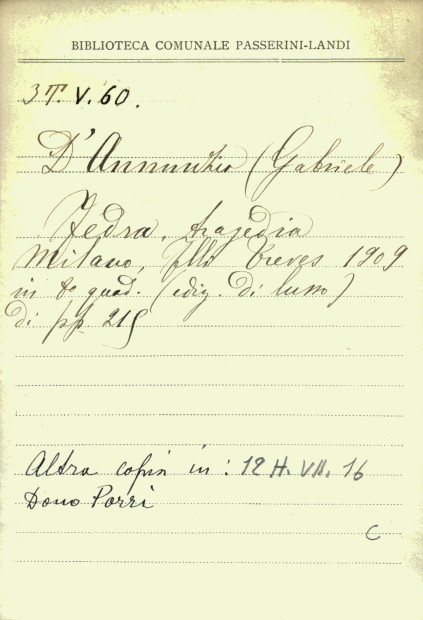 BIBLIOTECA COMUNALE PASSERINI-LANDI
3T. V. 60.
D'Annunzio (Gabriele)
Fedra, tragedia
Milano, Flli Treves 1909
in 8° quad. (ediz. di lusso)
di pp. 215
Altra copia in: 12 H. VII. 16
Dono Porri
C